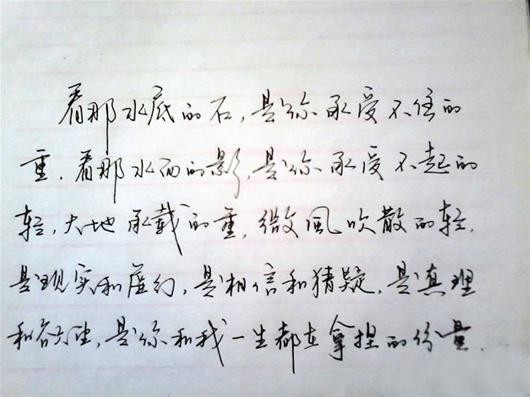 看那水底的石,是你承受不住的
重.看那水面的影,是你承受不起的
轻,大地承载的重,微风吹散的轻.
是现实和虚幻,是相信和猜疑,是真理
和,是你和我一生都在拿捏的份量.